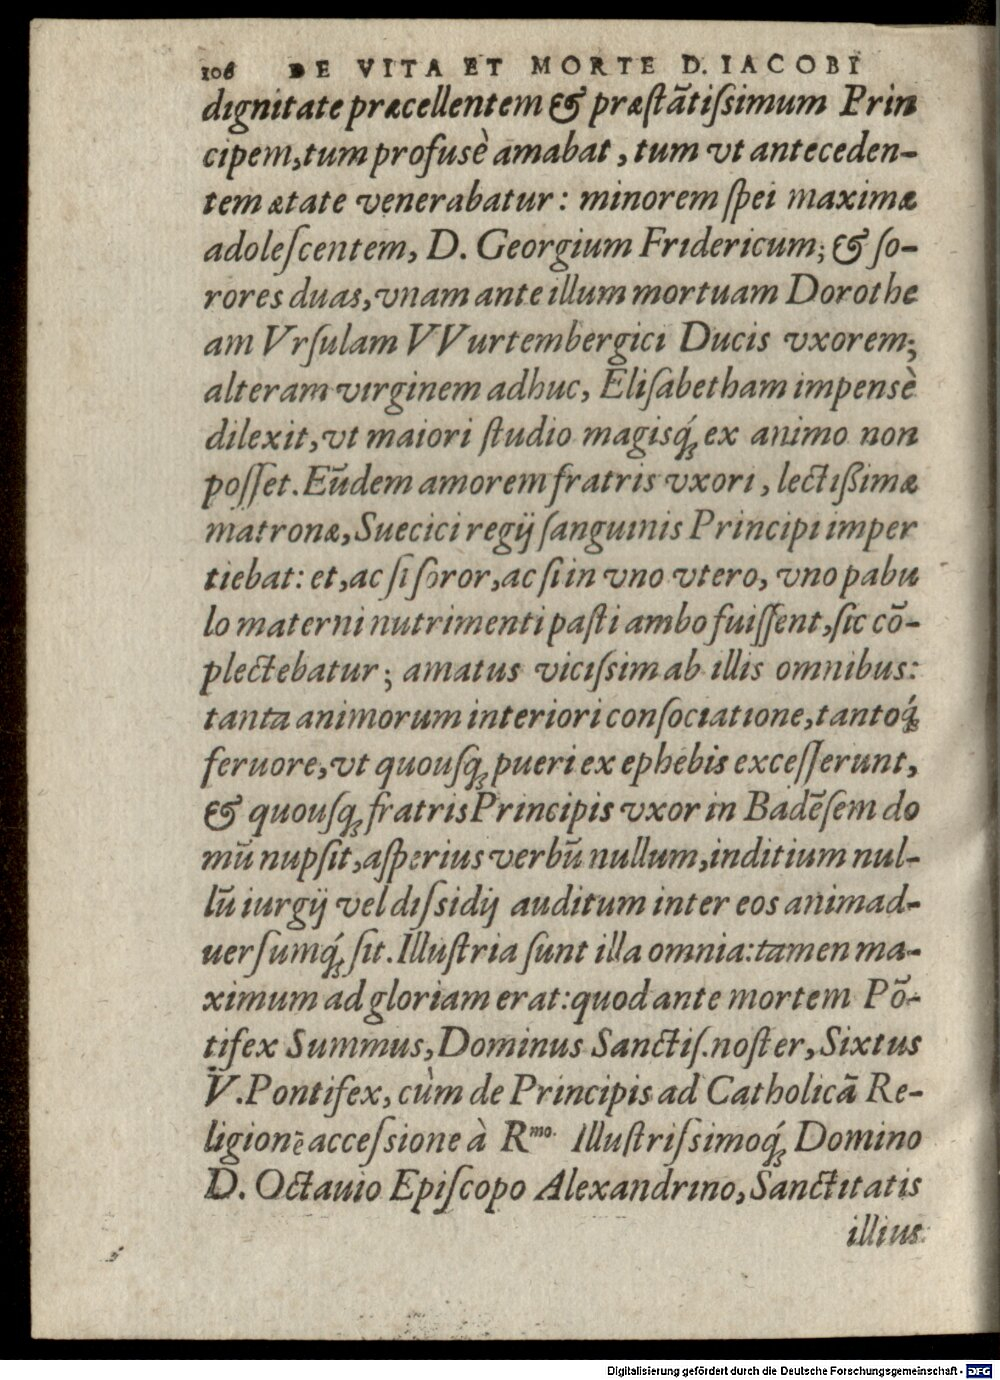 106 DE VITA ET MORTE D. IACOBI
dignitate præcellentem & præſtātiſsimum Prin
cipem, tum profusè amabat, tum vt anteceden-
tem ætate venerabatur: minorem ſpei maximæ
adoleſcentem, D. Georgium Fridericum; & ſo-
rores duas, vnam ante illum mortuam Dorothe
am Vrſulam VVurtembergici Ducis vxorem;
alteram virginem adhuc, Eliſabetham impensè
dilexit, vt maiori ſtudio magisq́; ex animo non
poſſet. Eūdem amorem fratris vxori, lectißimæ
matronæ, Suecici regij ſanguinis Principi imper
tiebat: et, ac ſi ſoror, ac ſi in vno vtero, vno pabu
lo materni nutrimenti paſti ambo fuiſſent, ſic cō-
plectebatur; amatus viciſsim ab illis omnibus:
tanta animorum interiori conſociatione, tantoq́;
feruore, vt quouſq; pueri ex ephebis exceſſerunt,
& quouſq; fratris Principis vxor in Badēſem do
mū nupſit, aſperius verbū nullum, inditium nul-
lū iurgij vel diſsidij auditum inter eos animad-
uerſumq́; ſit. Illuſtria ſunt illa omnia: tamen ma-
ximum ad gloriam erat: quod ante mortem Pō-
tifex Summus, Dominus Sanctiſ. noſter, Sixtus
V. Pontifex, cùm de Principis ad Catholicā Re-
ligionē acceſsione à Rmo. Illuſtriſsimoq́; Domino
D. Octauio Epiſcopo Alexandrino, Sanctitatis
illius
Digitalisierung gefördert durch die Deutsche Forschungsgemeinschaft - DFG